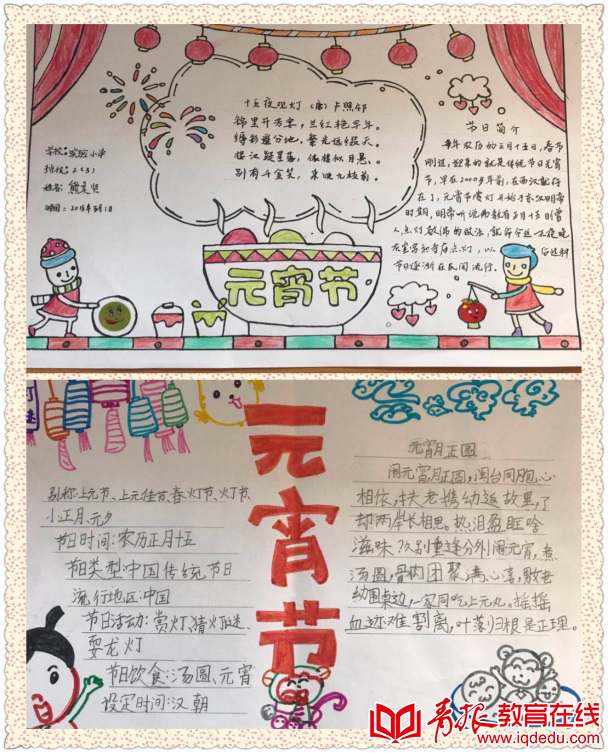 十五夜观灯 (唐) 卢照邻
锦里开芳宴，兰红艳早年。
缛彩遥分地，繁光远缀天。
接汉疑星落，依楼似月悬。
别有千金笑，来映九枝前。
学校：实验小学
班级：2(5)
姓名：熊
时间：2018年3月1日
节日简介
每年农历的正月十五日，春节
刚过，迎来的就是传统节日元宵
节，早在2000多年前，在西汉就存
在了，元宵节赏灯开始于东汉明帝
时期，明帝听说佛教有正月十五日僧
人点灯敬佛的做法，就命令这一天夜晚
在皇宫和寺庙点灯，以后这种
节日逐渐在民间流行。
元宵节
元宵节
别称：上元节、上元佳节、春灯节、灯节、
小正月、元夕
节日时间：农历正月十五
节类型中国传统节日
流行地区：中国
节日活动：赏灯、猜灯迷、
耍龙灯
节日饮食：汤圆、元宵
设定时间：汉朝
元宵月正圆
闹元宵，月正圆，闽台同胞心
相依，扶老携幼返故里，了
却两岸长相思。热泪盈眶啥
滋味？久别重逢分外闹元宵，煮
汤圆，骨肉团聚满心喜，敬老
幼围桌边，一家同吃上元丸，摇摇
血迹难割离，叶落归根是正理。
青报教育在线
www.iqdedu.com